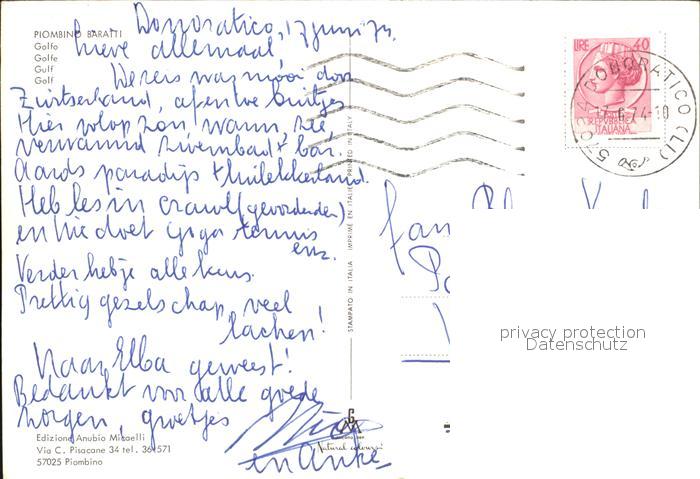 PIOMBINO BARATTI
Golfo
Golfe
Gulf
Golf
Donoratico, 17 juni 74.
Lieve allemaal,
Wereis was mooi door
Zwitserland, af en toe buitjes
Hier volop zon warm, zee,
verwarmd zwembad + bar.
Aards paradijs + luilekkerland.
Heb les in crawl (gevorderden)
en Nic doet Yoga tennis
enz.
Verder heb je alle keus.
Prettig gezelschap, veel
lachen!
Naar Elba geweest!
Bedankt voor alle goede
zorgen, groetjes
Nico
en Anke
Edizione Anubio Micaelli
Via C. Pisacane 34 tel. 36.571
57025 Piombino
STAMPATO IN ITALIA IMPRIMÉ EN ITALIE PRINTED IN ITALY
Natural colour
LIRE 40
REPVBBLICA
ITALIANA
57024 DONORATICO (LI)
17.6.74-10
fam
privacy protection
Datenschutz